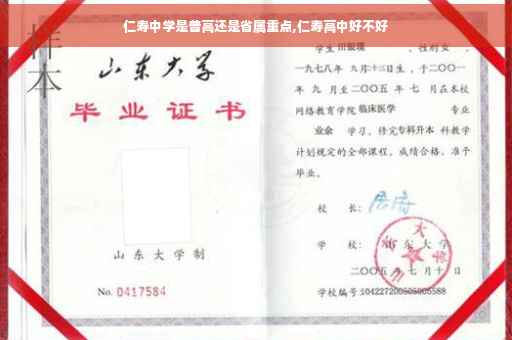 仁寿中学是普高还是省属重点,仁寿高中好不好
样本
山东大学
毕业证书
山东大学制
No. 0417584
学生 性别女,
一九七八年 九月十三日生,于二〇〇一
年 九 月至二〇〇五 年 七 月在本校
网络教育学院临床医学 专业
业余 学习,修完专科升本 科教学
计划规定的全部课程,成绩合格,准予
毕业。
校 长:
学 校: 山东大学
二〇〇五 年 七 月 十 日
学校编号: